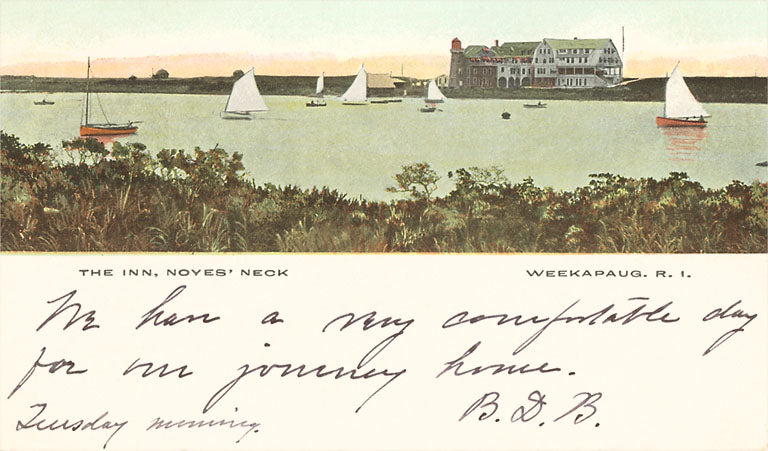 THE INN, NOYES' NECK WEEKAPAUG. R. I.
We have a very comfortable day
for our journey home.
Tuesday morning. B. D. B.